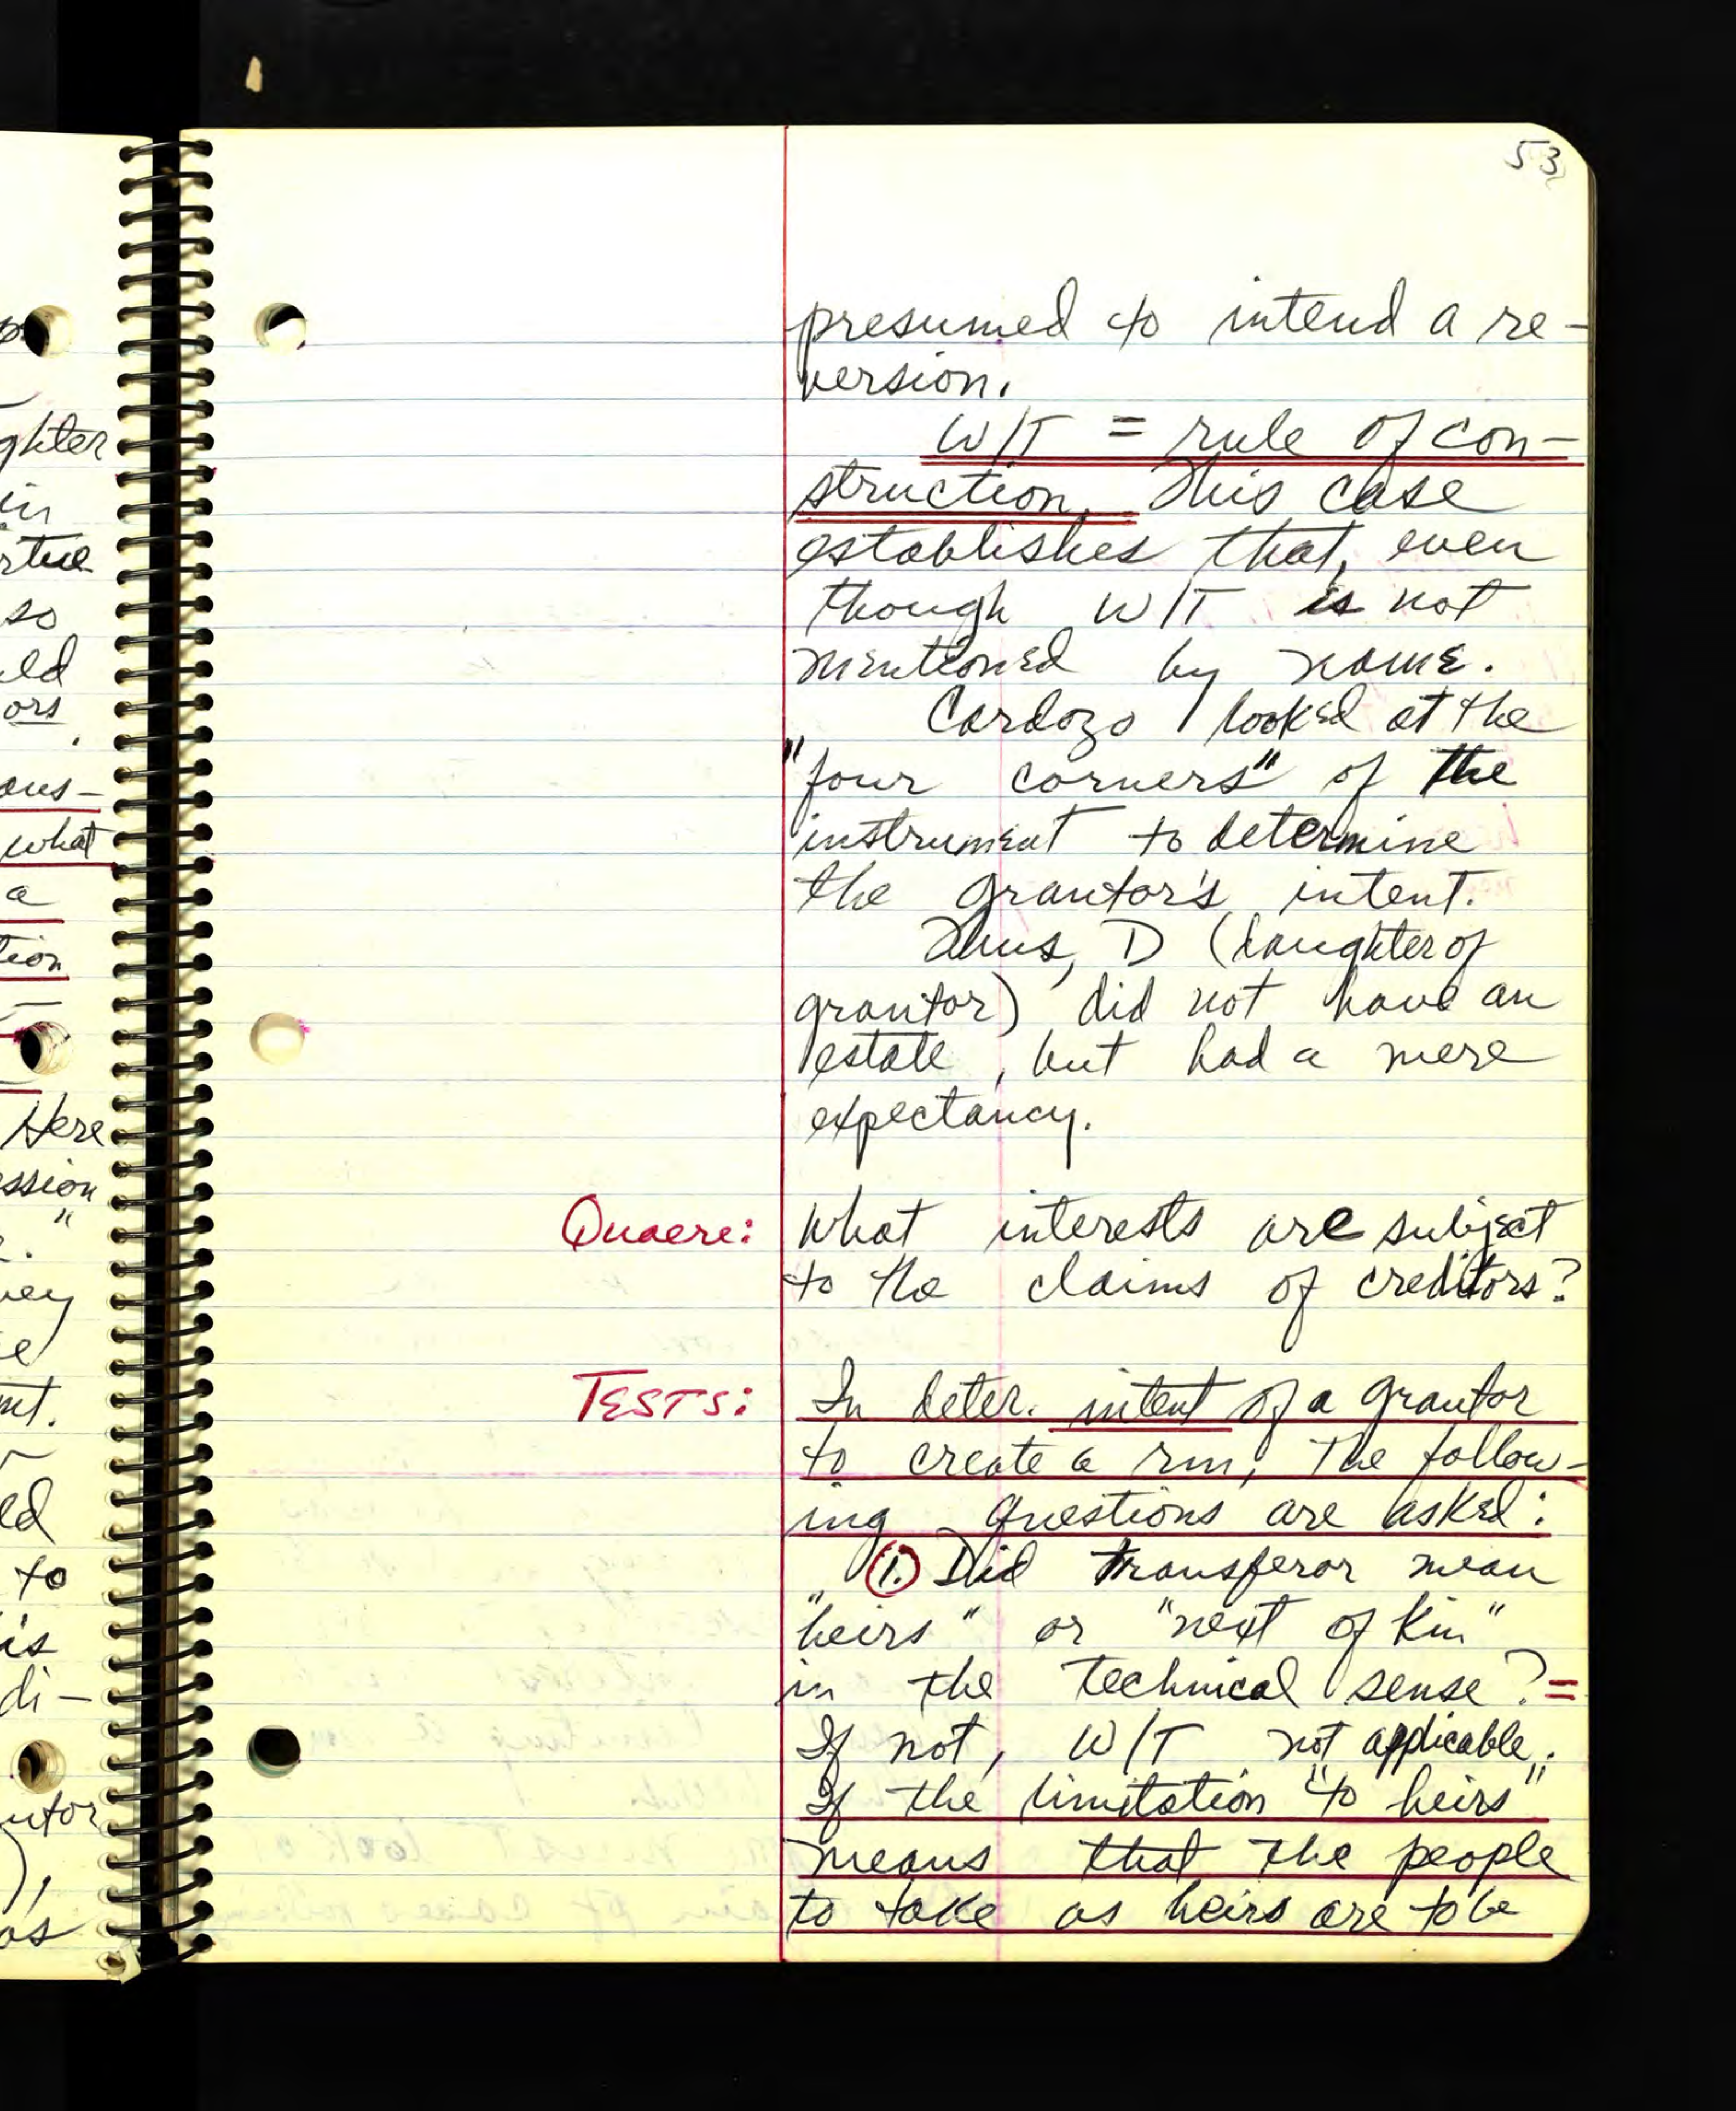 ghter
in
rtue
so
ors
ous-
what
a
tion
Here
ession
"
ey
e
mt.
ed
to
is
di-
utor
),
as
53
presumed to intend a re-
version.
W/T = rule of con-
struction. This case
establishes that, even
though W/T is not
mentioned by name.
Cardozo looked at the
"four corners" of the
instrument to determine
the grantor's intent.
Thus, D (daughter of
grantor) did not have an
estate, but had a mere
expectancy.
Quaere: What interests are subject
to the claims of creditors?
TESTS: In deter. intent of a grantor
to create a rm, the follow-
ing questions are asked:
1. Did transferor mean
"heirs" or "next of kin"
in the technical sense? =
If not, W/T not applicable.
If the limitation "to heirs"
means that the people
to take as heirs are to be